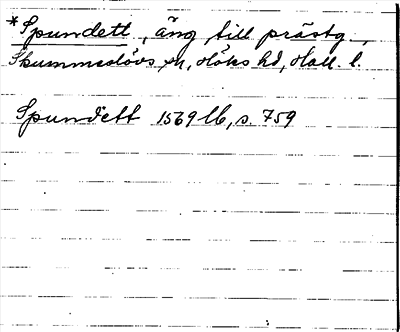 *Spundett, äng till prästg.,
Skummeslövs sn, Höks hd, Hall. l.
Spundett 1569 lb, s. 759